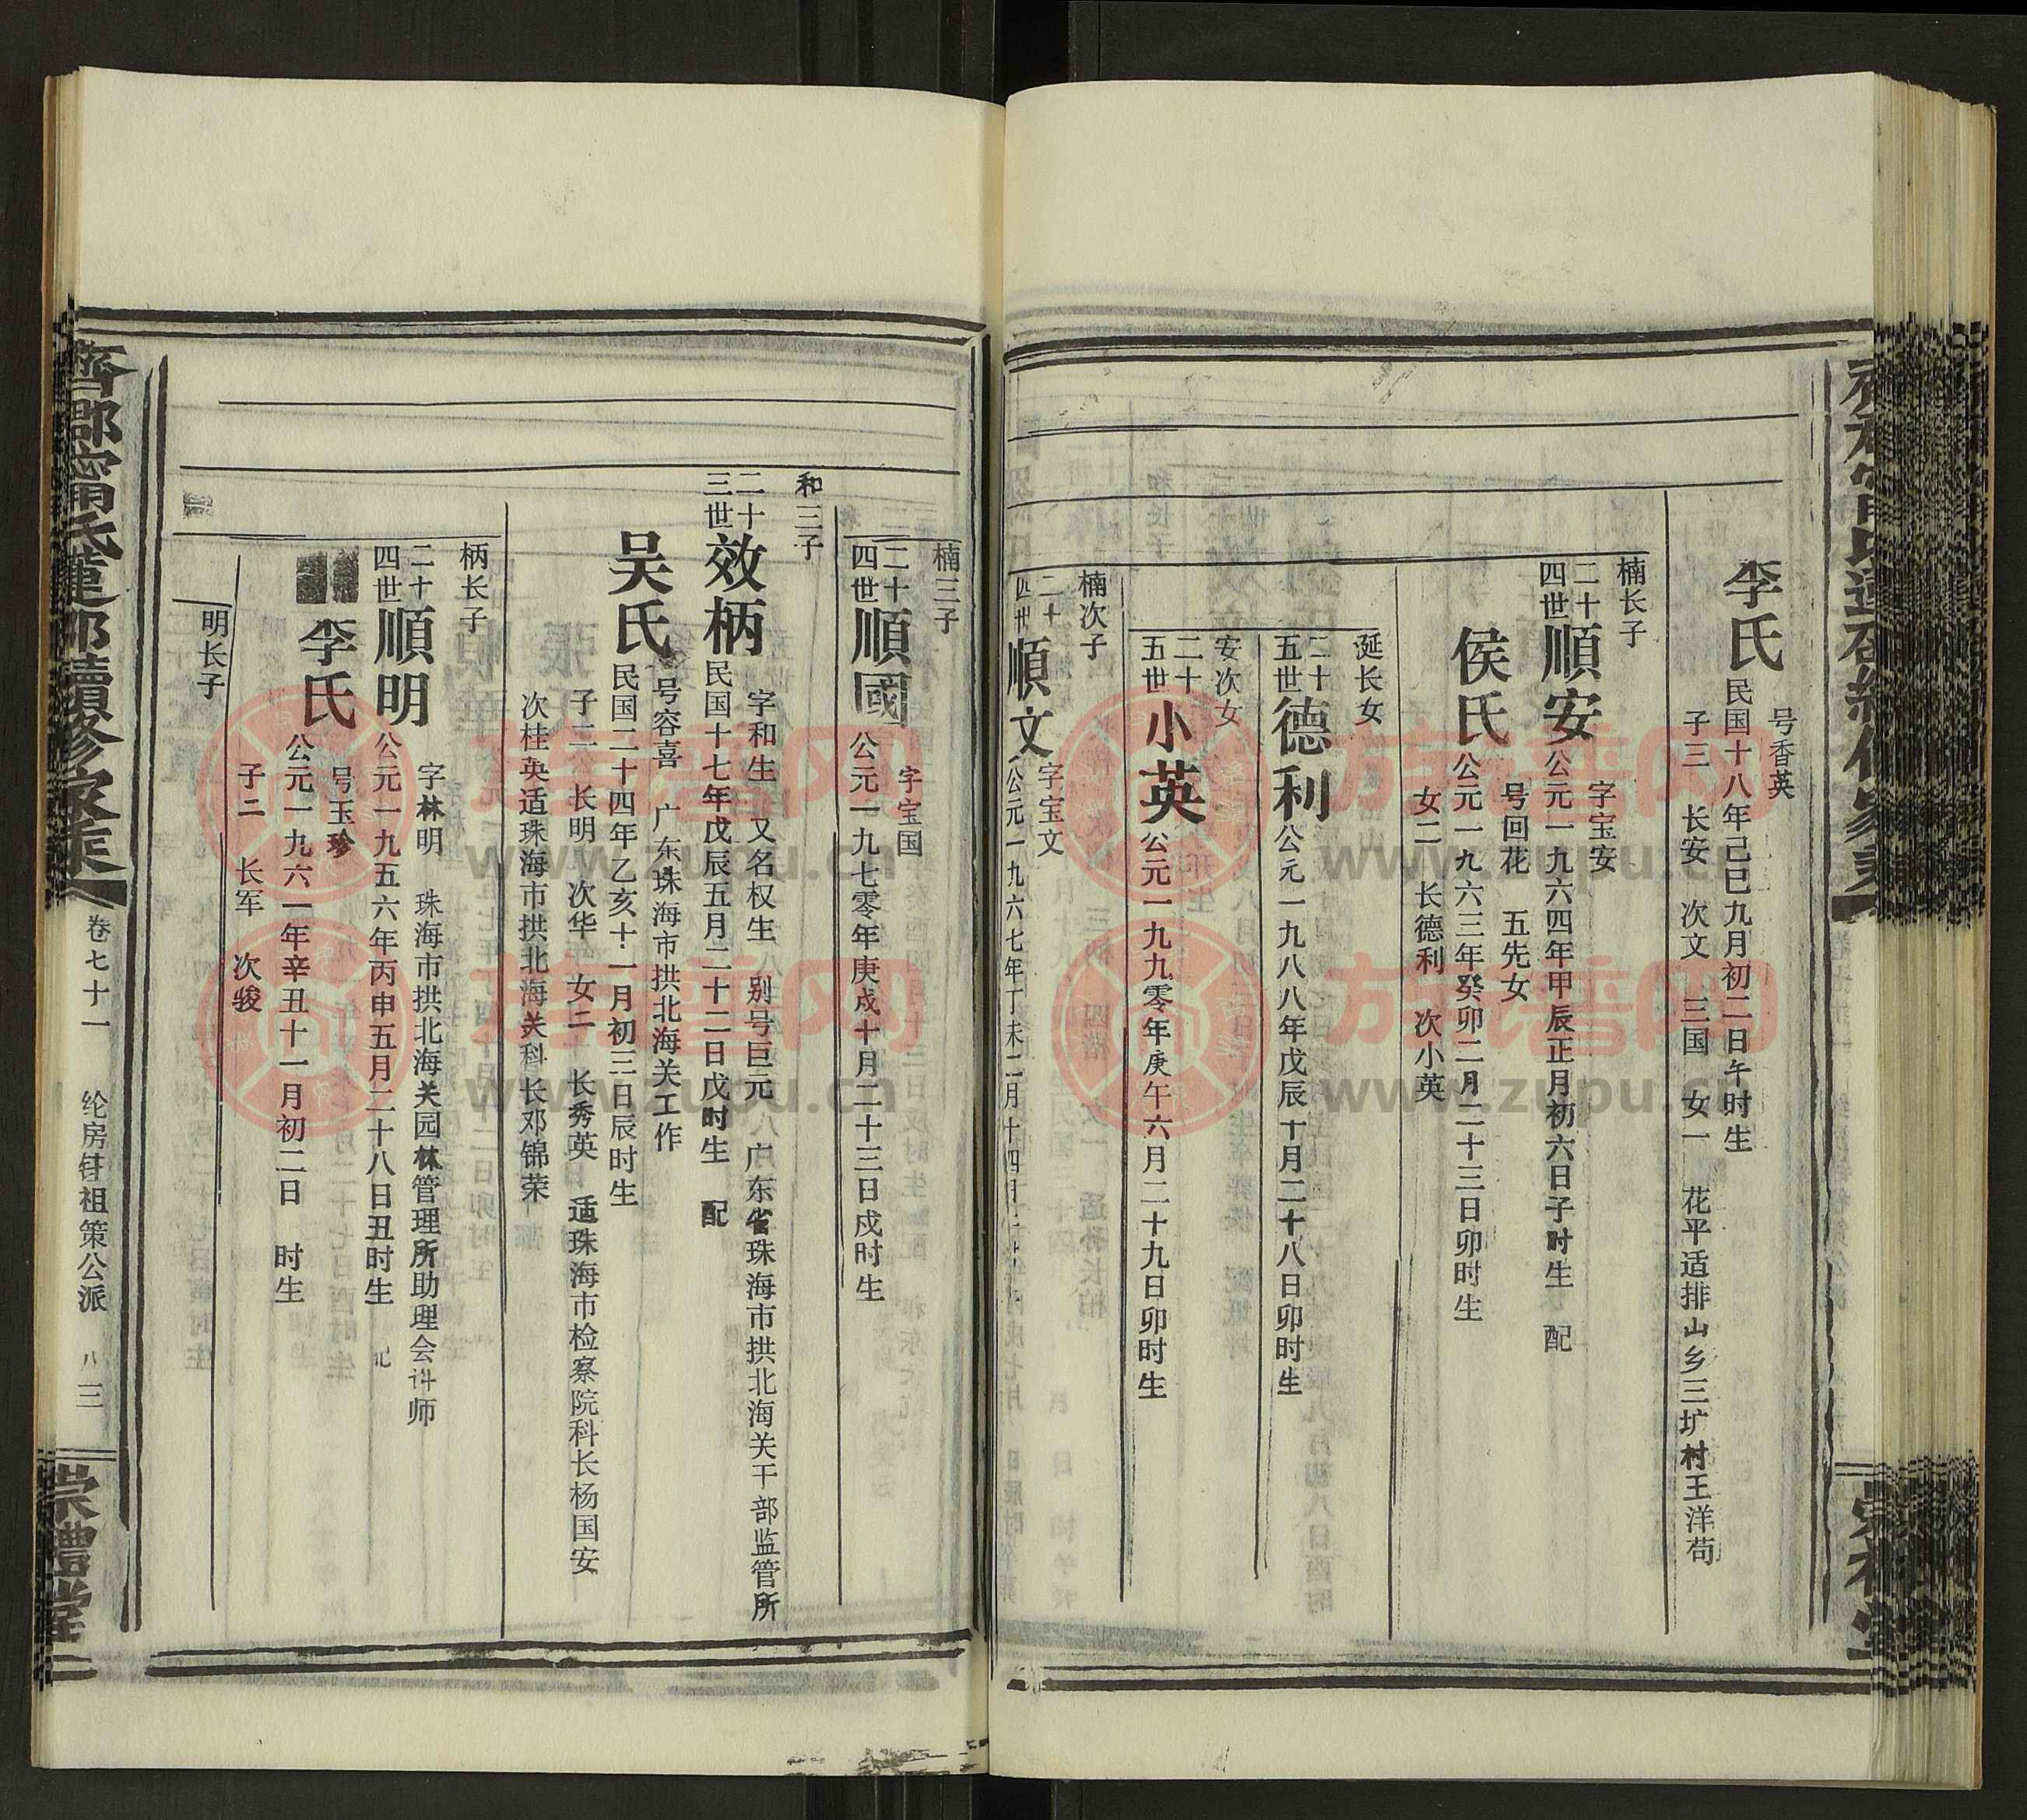 李氏
号香英
民国十八年己巳九月初二日午时生
子三 长安 次文 三国 女一 花平适排山乡三圹村王洋苟
楠长子
二十四世
順安
字宝安
公元一九六四年甲辰正月初六日子时生 配
侯氏
号回花 五先女
公元一九六三年癸卯二月二十三日卯时生
女二 长德利 次小英
涎长女
二十五世
德利
公元一九八八年戊辰十月二十八日卯时生
安次女
二十五世
小英
公元一九九零年庚午六月二十九日卯时生
楠次子
二十四世
順文
字宝文
公元一九六七年丁未二月十四日
楠三子
二十四世
順國
字宝国
公元一九七零年庚戍十月二十三日戍时生
和三子
二十三世
效柄
字和生 又名权生 别号巨元 广东省珠海市拱北海关干部监管所
民国十七年戊辰五月二十二日戊时生 配
吴氏
号容喜 广东珠海市拱北海关工作
民国二十四年乙亥十一月初三日辰时生
子二 长明 次华 女二 长秀英 适珠海市检察院科长杨国安
次桂英适珠海市拱北海关科长邓锦荣
柄长子
二十四世
順明
字林明 珠海市拱北海关园林管理所助理会计师
公元一九五六年丙申五月二十八日丑时生
李氏
号玉珍
公元一九六一年辛丑十一月初二日 时生
子二 长军 次骏
明长子
齊郡甯氏蓮邵續修家乘
卷七十一 纶房锖祖策公派 八三
崇禮堂
族谱网
www.zupu.cn
族谱网
www.zupu.cn
族谱网
www.zupu.cn
族谱网
www.zupu.cn